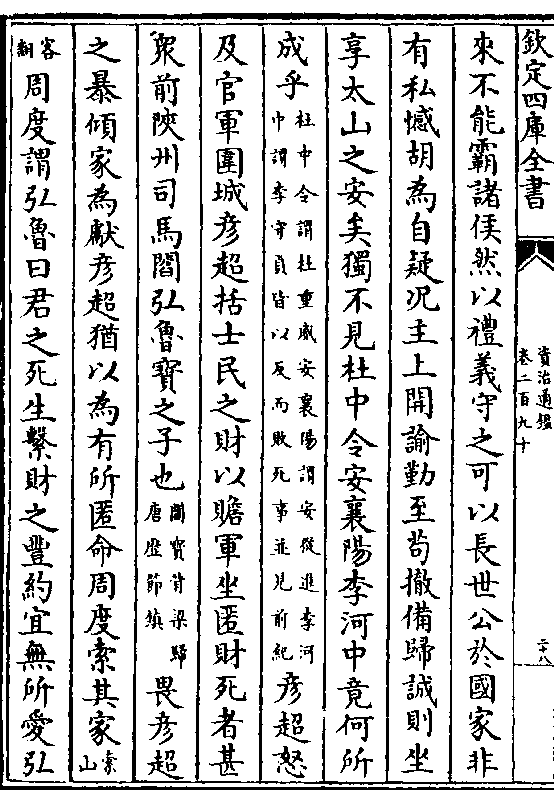 欽定四庫全書
資治通鑑
卷二百九十
二十八
來不能霸諸侯然以禮義守之可以長世公於國家非
有私憾胡為自疑况主上開諭勤至苟撤備歸誠則坐
享太山之安矣獨不見杜中令安襄陽李河中竟何所
成乎杜中令謂杜重威安襄陽謂安從進李河
中謂李守貞皆以反而敗死事並見前紀彦超怒
及官軍圍城彦超括士民之財以贍軍坐匿財死者甚
衆前陝州司馬閻弘魯寶之子也閻寶背梁歸
唐歴節鎮畏彦超
之暴傾家為獻彦超猶以為有所匿命周度索其家索
山
客
翻周度謂弘魯曰君之死生繫財之豐約宜無所愛弘